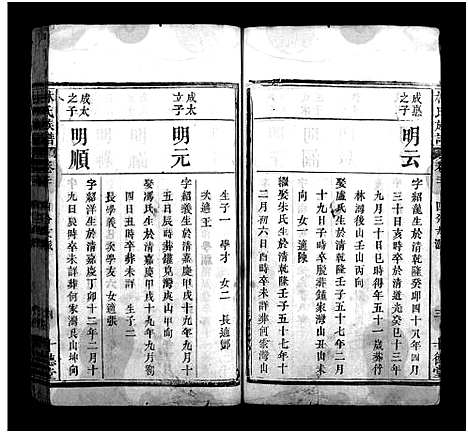 成惠
之子
明云
字紹義生於清乾隆癸卯四十八年四月
三十日亥時卒於清道光癸巳十三年
九月三十日巳時年五十一歲葬行
林灣後山壬山丙向
娶盧氏生於清乾隆壬子五十七年二月
十九日子時卒殁葬鍾家灣山丑山未
向 女一適陳
繼娶朱氏生於清乾隆壬子五十七年
二月初六日酉時卒未詳葬何家灣山
生子一 學才 女二 長適鄭
次適王
成太
立子
明元
字紹 生於清嘉慶甲戌十九年九月十
五日辰時卒葬鍾 灣 山甲向
娶馮氏生於清嘉慶甲戌十九年九月初
四日丑時卒葬未詳 生子二
長學義 次學友 六女適張
成太
之子
明順
字紹洋生於清嘉慶丁卯十二年二月十
九日辰時卒未詳葬何家灣艮山坤向
林氏族譜
十德堂